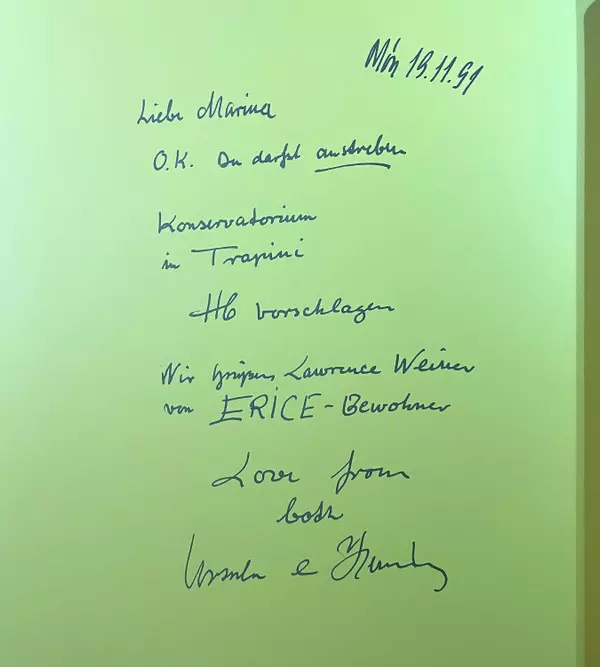 Mön 19.11.91
Liebe Marina
O.K. Du darfst anstreben
Konservatorium
in Trapani
vorschlagen
Wir grüßen Lawrence Weiner
von ERICE-Bewohner
Love from
both
Ursula e